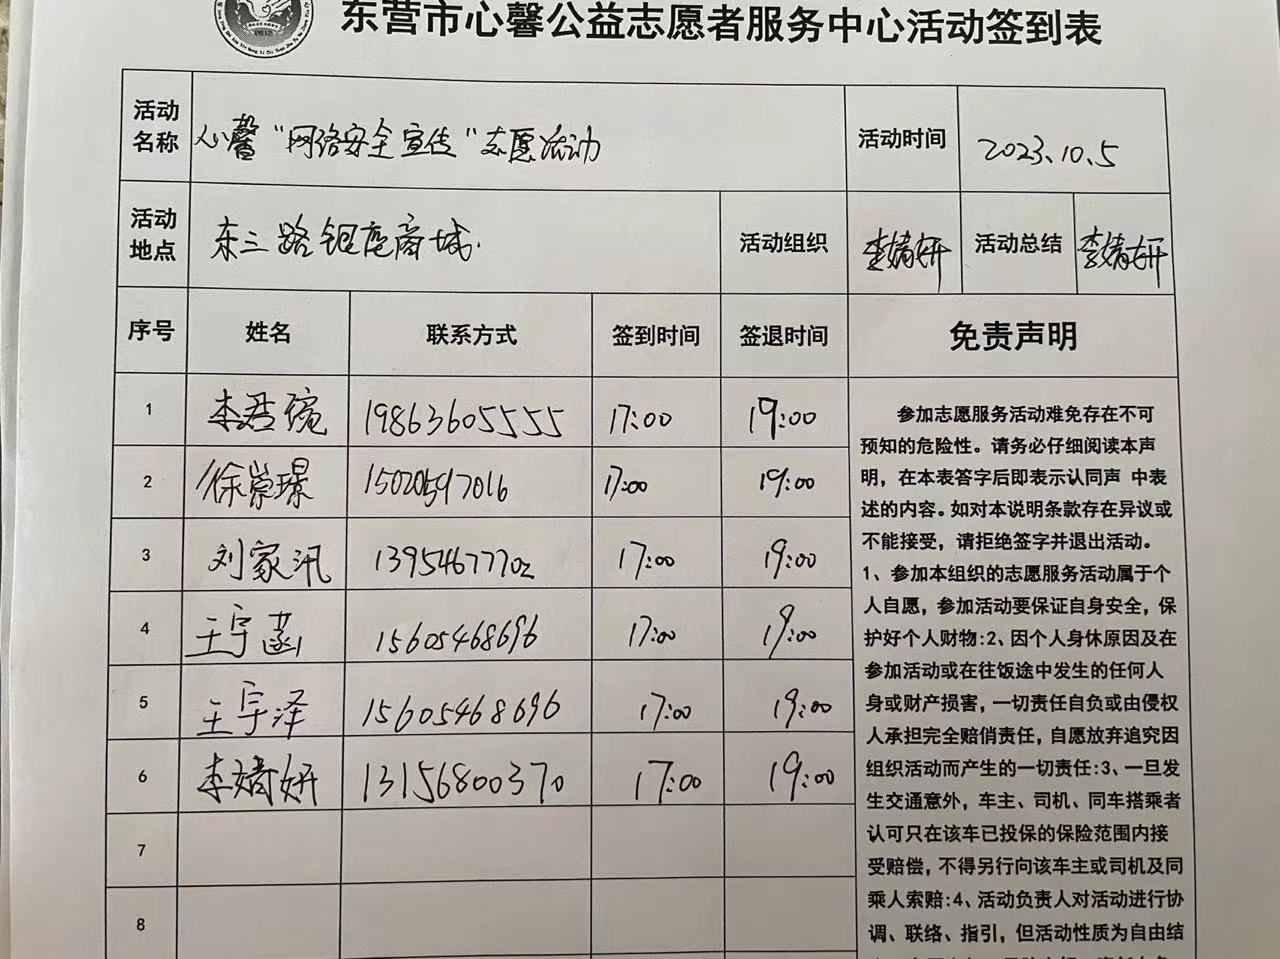 东营市心馨公益志愿者服务中心活动签到表
活动名称 心馨“网络安全宣传”志愿活动 活动时间 2023.10.5
活动地点 东三路银座商城. 活动组织 李婧妍 活动总结 李婧妍
序号 姓名 联系方式 签到时间 签退时间 免责声明
1 李君琬 19863605555 17:00 19:00
2 徐崇璟 15020597016 17:00 19:00
3 刘家汛 13954677702 17:00 19:00
4 王宇菡 15605468696 17:00 19:00
5 王宇泽 15605468696 17:00 19:00
6 李婧妍 13156800370 17:00 19:00
7
8
参加志愿服务活动难免存在不可
预知的危险性。请务必仔细阅读本声
明，在本表签字后即表示认同声 中表
述的内容。如对本说明条款存在异议或
不能接受，请拒绝签字并退出活动。
1、参加本组织的志愿服务活动属于个
人自愿，参加活动要保证自身安全，保
护好个人财物:2、因个人身休原因及在
参加活动或在往饭途中发生的任何人
身或财产损害，一切责任自负或由侵权
人承担完全赔俏责任，自愿放弃追究因
组织活动而产生的一切责任:3、一旦发
生交通意外，车主、司机、同车搭乘者
认可只在该车已投保的保险范围内接
受赔偿，不得另行向该车主或司机及同
乘人索赔:4、活动负责人对活动进行协
调、联络、指引，但活动性质为自由结